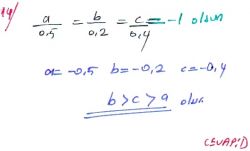 14/ a/0,5 = b/0,2 = c/0,4 = -1 olsun
a = -0,5 b = -0,2 c = -0,4
b > c > a olur
CEVAP: D